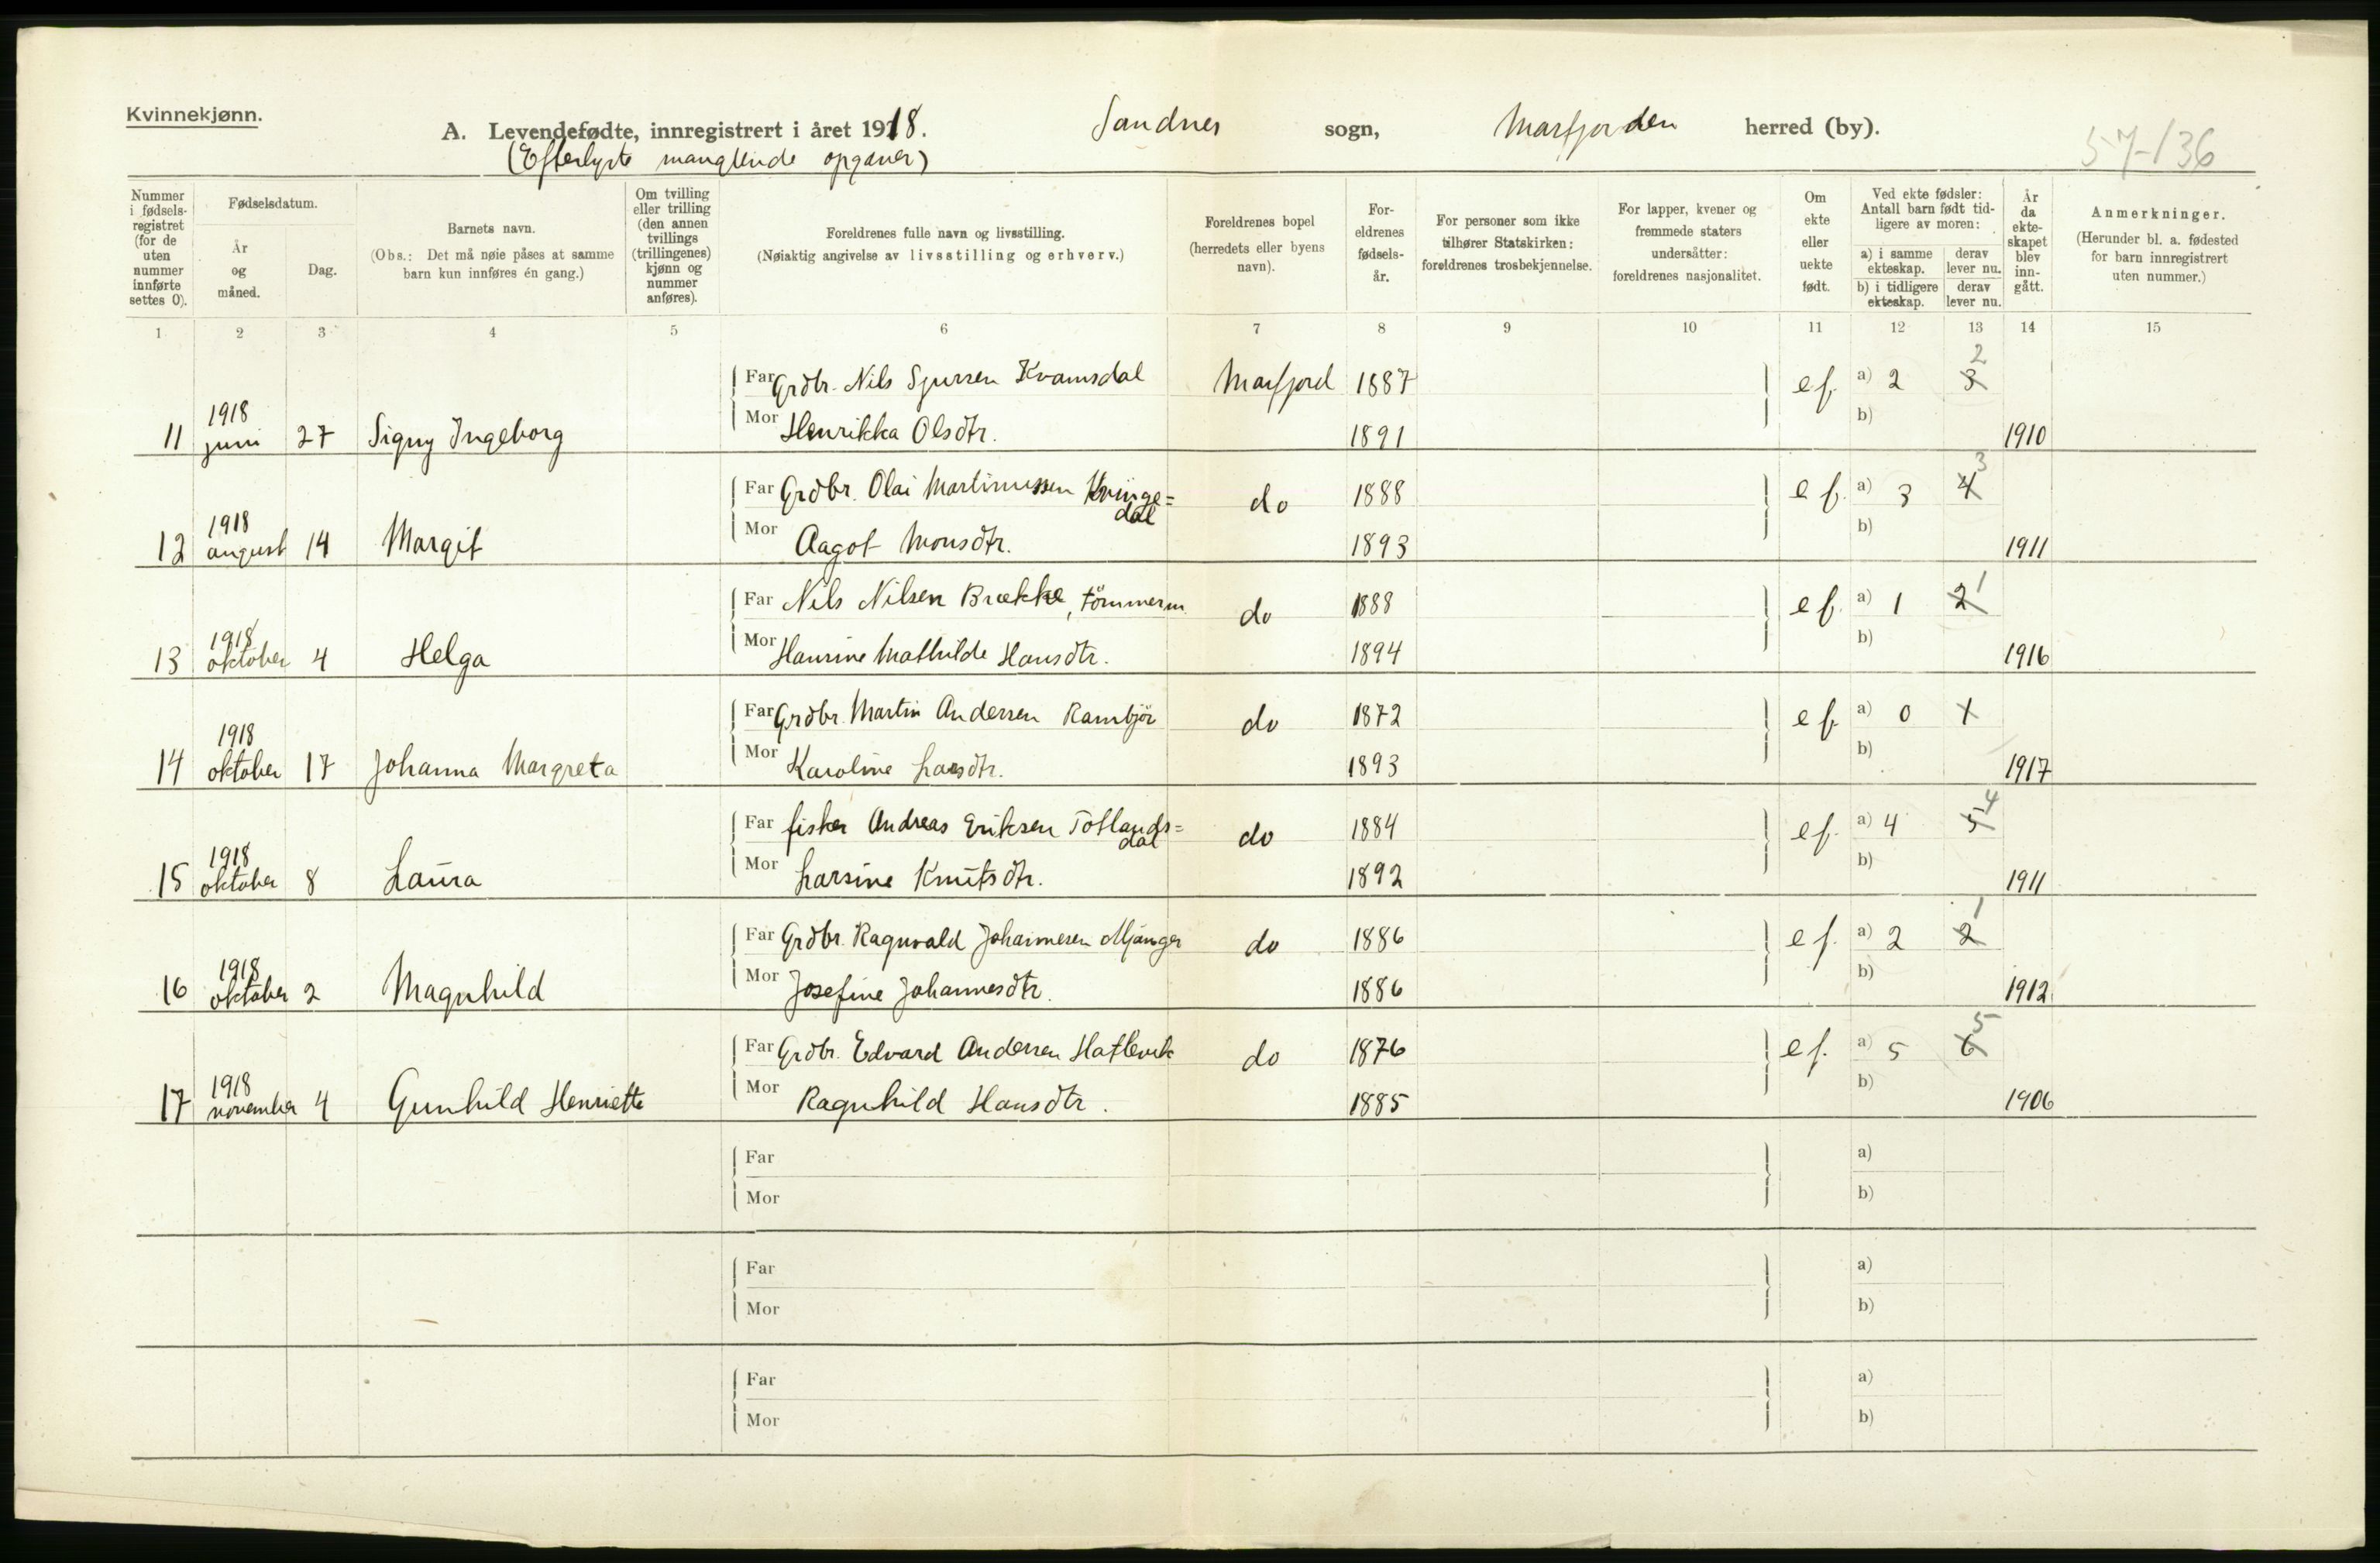 Kvinnekjønn.
A. Levendefødte, innregistrert i året 1918. Sandnes sogn, Masfjorden herred (by).
(Efterlyste manglende opgaver) 57-136
Nummer i fødsels-registret (for de uten nummer innførte settes 0).
Fødselsdatum.
År og måned.
Dag.
Barnets navn.
(Obs.: Det må nøie påses at samme barn kun innføres én gang.)
Om tvilling eller trilling (den annen tvillings (trillingenes) kjønn og nummer anføres).
Foreldrenes fulle navn og livsstilling.
(Nøiaktig angivelse av livsstilling og erhverv.)
Foreldrenes bopel (herredets eller byens navn).
For-eldrenes fødsels-år.
For personer som ikke tilhører Statskirken: foreldrenes trosbekjennelse.
For lapper, kvener og fremmede staters undersåtter: foreldrenes nasjonalitet.
Om ekte eller uekte født.
Ved ekte fødsler: Antall barn født tid-ligere av moren:
a) i samme ekteskap. derav lever nu.
b) i tidligere ekteskap. derav lever nu.
År da ekte-skapet blev inn-gått.
Anmerkninger.
(Herunder bl. a. fødested for barn innregistrert uten nummer.)
1 2 3 4 5 6 7 8 9 10 11 12 13 14 15
Far Grdbr. Nils Sjursen Kvamsdal Masfjord 1887 e f. a) 2 3 2
11 1918 juni 27 Signy Ingeborg Mor Henrikka Olsdtr. 1891 b) 1910
Far Grdbr. Olai Martinussen Kvinge=dal do 1888 e f. a) 3 4 3
12 1918 august 14 Margit Mor Aagot Monsdtr. 1893 b) 1911
Far Nils Nilsen Brække, tömmerm. do 1888 e f. a) 1 2 1
13 1918 oktober 4 Helga Mor Hansine Mathilde Hansdtr. 1894 b) 1916
Far Grdbr. Martin Andersen Rambjör do 1872 e f. a) 0 1
14 1918 oktober 17 Johanna Margreta Mor Karoline Larsdtr. 1893 b) 1917
Far fisker Andreas Eriksen Totlands=dal do 1884 e f. a) 4 5 4
15 1918 oktober 8 Laura Mor Larsine Knutsdtr. 1892 b) 1911
Far Grdbr. Ragnvald Johannesen Mjanger do 1886 e f. a) 2 2 1
16 1918 oktober 2 Magnhild Mor Josefine Johannesdtr. 1886 b) 1912
Far Grdbr. Edvard Andersen Hatlevik do 1876 e f. a) 5 6 5
17 1918 november 4 Gunhild Henriette Mor Ragnhild Hansdtr. 1885 b) 1906
Far a)
Mor b)
Far a)
Mor b)
Far a)
Mor b)